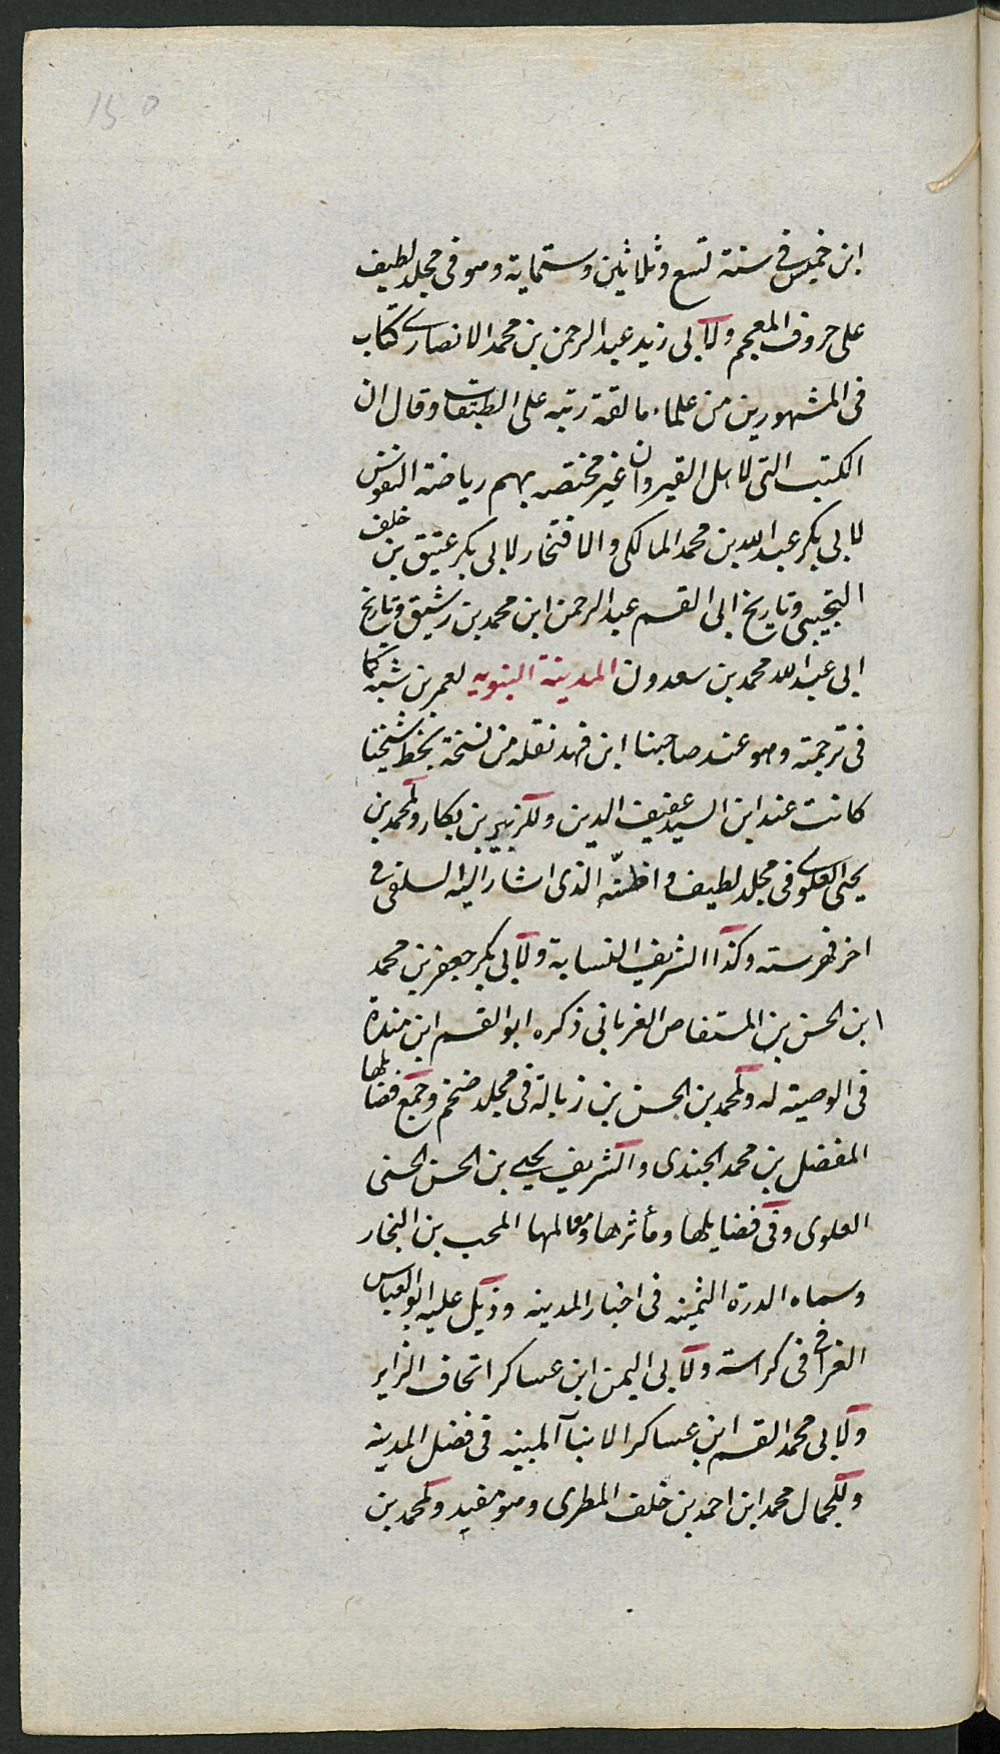 150
ابن خميس في سنة تسع وثلاثين وستماية وهو في مجلد لطيف
على حروف المعجم ولابى زيد عبد الرحمن بن محمد الانصارى كتاب
فى المشهورين من علماء مالقة رتبه على الطبقات وقال ان
الكتب التى لاهل القيروان غير مختصه بهم رياضة النفوس
لابى بكر عبد الله بن محمد المالكى والافتخار لابى بكر عتيق بن خلف
التجيبى وتاريخ ابى القسم عبد الرحمن ابن محمد بن رشيق وتاريخ
ابى عبد الله محمد بن سعدون المدينة النبويه لعمر بن شبه كما
فى ترجمته وهو عند صاحبنا ابن فهد نقله من نسخة بخط شيخنا
كانت عند ابن السيد عفيف الدين وللزبير بن بكار ولمحمد بن
يحيى العلوى فى مجلد لطيف واظنّه الذى اشار اليه السلفى فى
اخر فهرسته وكذا الشريف النسابة ولابى بكر جعفر بن محمد
ابن الحسن بن المستفاض الفريابى ذكره ابو القسم ابن مندة
فى الوصية له ولمحمد بن الحسن بن زبالة فى مجلد ضخم وجمع فضايلها
المفضل بن محمد الجندى والشريف يحيى بن الحسن الحسنى
العلوى وفى فضايلها ومأثرها ومعالمها المحب بن النجار
وسماه الدرة الثمينه فى اخبار المدينه وذيّل عليه ابو العباس
الغرافى فى كراسة ولابى اليمن ابن عساكر اتحاف الزاير
ولابى محمد القسم ابن عساكر الانبآ المبينه فى فضل المدينه
وللجمال محمد ابن احمد بن خلف المطرى وهو مفيد ولمحمد بن